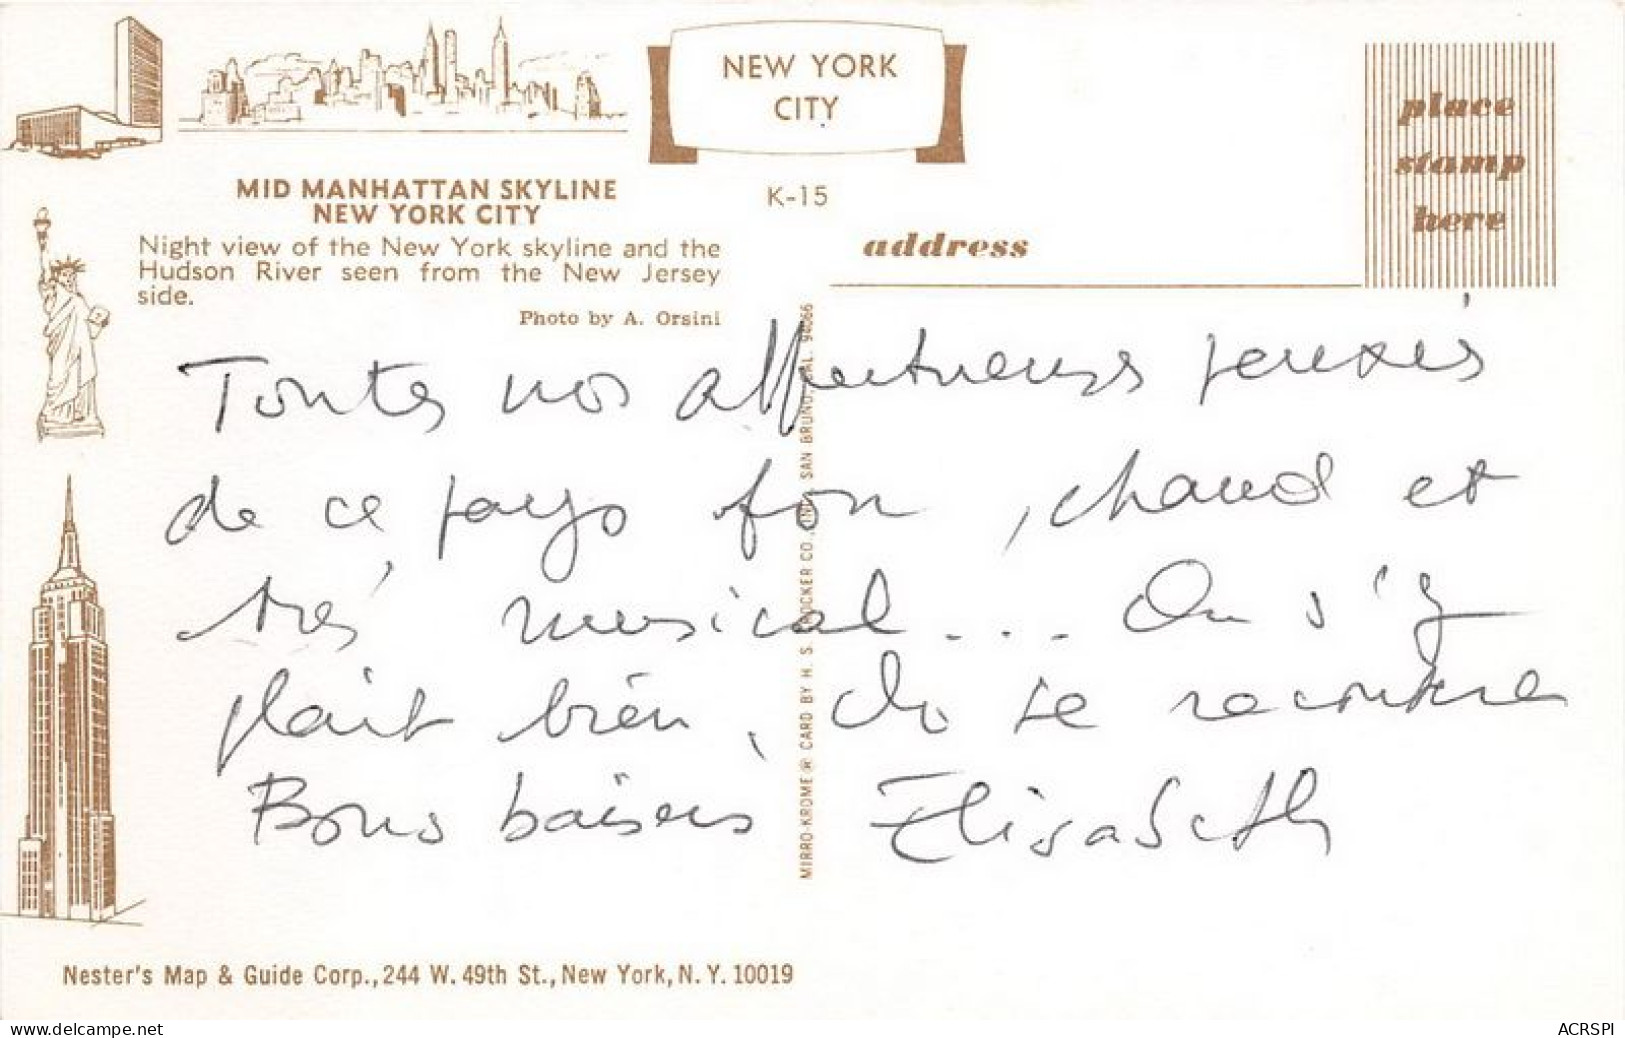 NEW YORK
CITY
place
stamp
here
MID MANHATTAN SKYLINE
NEW YORK CITY
K-15
Night view of the New York skyline and the
Hudson River seen from the New Jersey
side.
Photo by A. Orsini
address
Toutes nos affectueuses pensées
de ce pays fou, chaud et
très musical... On s'y
plait bien, à se raconter
Bons baisers Elisabeth
MIRRO-KROME ® CARD BY H. S. CROCKER CO., INC., SAN BRUNO, CAL. 94066
Nester's Map & Guide Corp., 244 W. 49th St., New York, N. Y. 10019
www.delcampe.net
ACRSPI